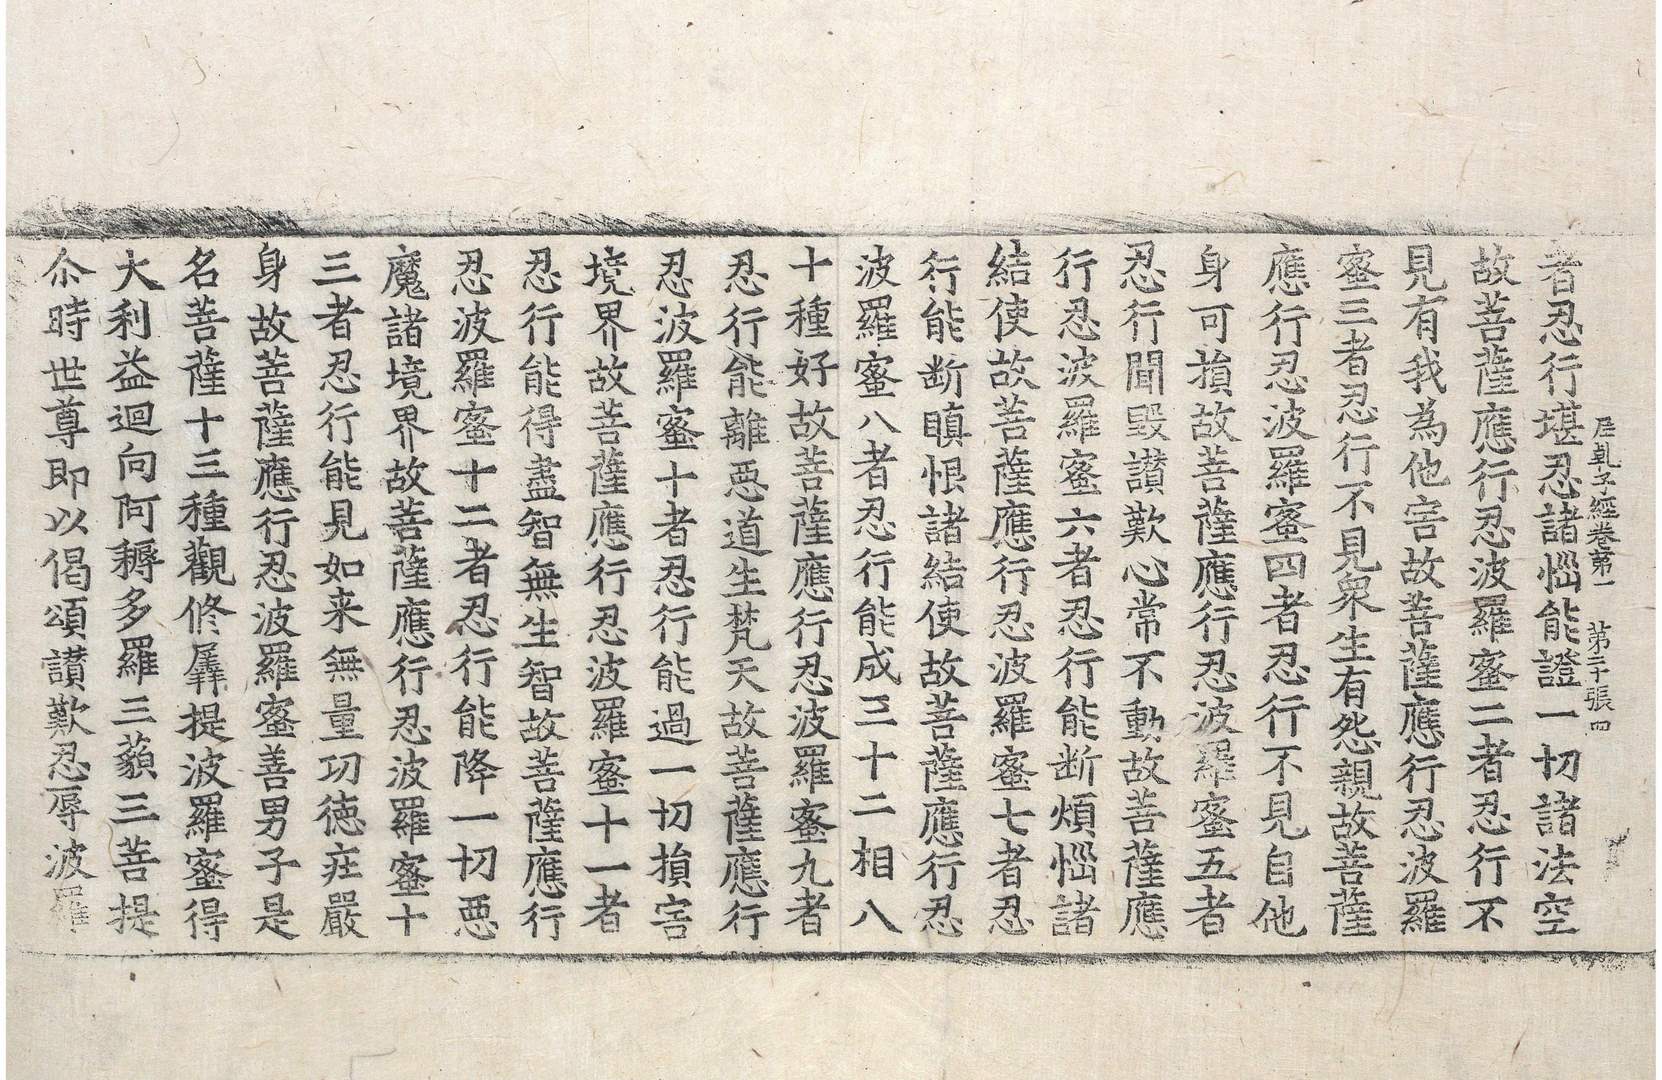 尼乹子經卷第一　第二十張　四
者忍行堪忍諸惱能證一切諸法空
故菩薩應行忍波羅蜜二者忍行不
見有我為他害故菩薩應行忍波羅
蜜三者忍行不見衆生有怨親故菩薩
應行忍波羅蜜四者忍行不見自他
身可損故菩薩應行忍波羅蜜五者
忍行聞毀讃歎心常不動故菩薩應
行忍波羅蜜六者忍行能断煩惱諸
結使故菩薩應行忍波羅蜜七者忍
行能断瞋恨諸結使故菩薩應行忍
波羅蜜八者忍行能成三十二相八
十種好故菩薩應行忍波羅蜜九者
忍行能離惡道生梵天故菩薩應行
忍波羅蜜十者忍行能過一切損害
境界故菩薩應行忍波羅蜜十一者
忍行能得盡智無生智故菩薩應行
忍波羅蜜十二者忍行能降一切惡
魔諸境界故菩薩應行忍波羅蜜十
三者忍行能見如来無量功徳莊嚴
身故菩薩應行忍波羅蜜善男子是
名菩薩十三種觀修羼提波羅蜜得
大利益迴向阿耨多羅三藐三菩提
尒時世尊即以偈頌讃歎忍辱波羅